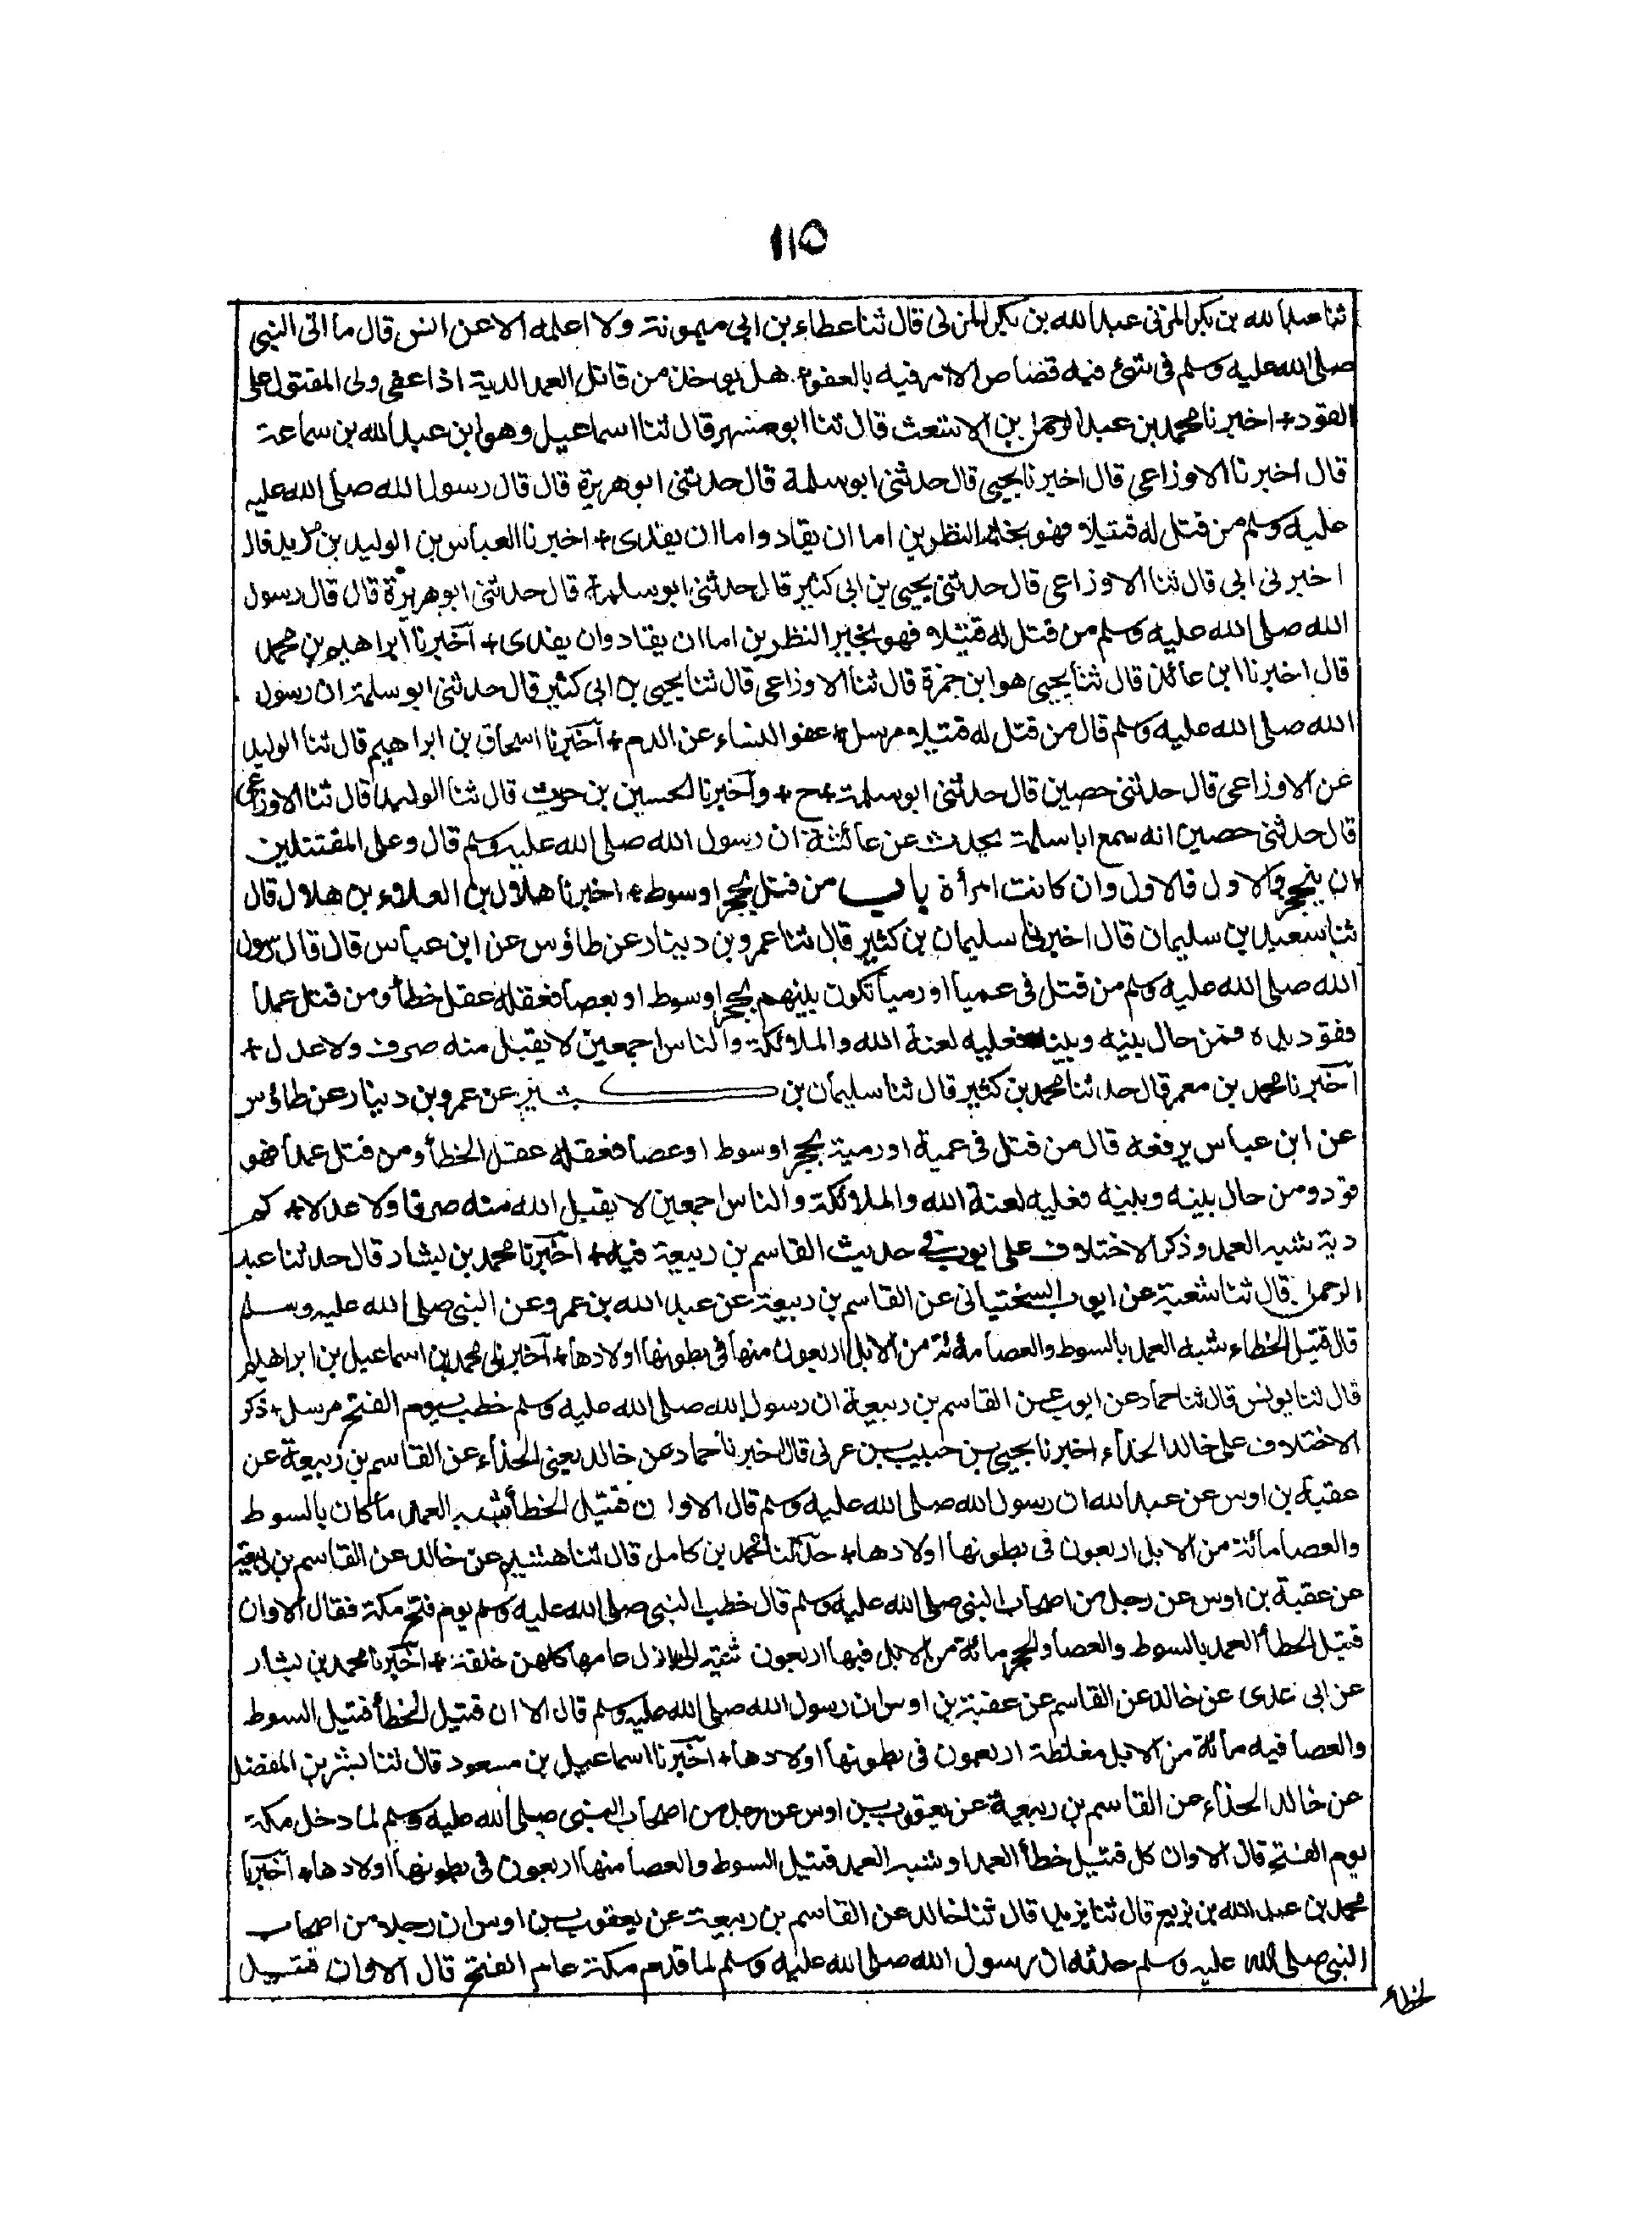 ١١٥
ثنا عبد الله بن بكر المزنى عبد الله بن بكر المزنى قال ثنا عطاء بن ابي ميمونة ولا اعلمه الا عن انس قال ما اتى النبى
صلى الله عليه وسلم فى شئ فيه قضاص الا امر فيه بالعفو+ هل يوخذ من قاتل العمد الدية اذا عفى ولى المقتول على
القود+ اخبرنا محمد بن عبد الرحمن بن الاشعث قال ثنا ابو مسهر قال ثنا اسماعيل وهو ابن عبد الله بن سماعة
قال اخبرنا الاوزاعى قال اخبرنا يحيى قال حدثنى ابو سلمة قال حدثنى ابو هريرة قال قال رسول الله صلى الله عليه
عليه وسلم من قتل له قتيلا فهو بخير النظرين اما ان يقاد واما ان يفدى+ اخبرنا العباس بن الوليد بن مزيد قال
اخبرنى ابى قال ثنا الاوزاعى قال حدثنى يحيى بن ابى كثير قال حدثنى ابو سلمة قال حدثنى ابو هريرة قال قال رسول
الله صلى الله عليه وسلم من قتل له قتيلا فهو بخير النظرين اما ان يقاد وان يفدى+ آخبرنا ابراهيم بن محمد
قال اخبرنا ابن عائذ قال ثنا يحيى هو ابن حمزة قال ثنا الاوزاعى قال ثنا يحيى بن ابى كثير قال حدثنى ابو سلمة ان رسول
الله صلى الله عليه وسلم قال من قتل له قتيلا مرسل+ عفو النساء عن الدم+ آخبرنا اسحاق بن ابراهيم قال ثنا الوليد
عن الاوزاعى قال حدثنى حصين قال حدثنى ابو سلمة+ح+ وآخبرنا الحسين بن حريث قال ثنا الوليد قال ثنا الاوزاعى
قال حدثنى حصين انه سمع ابا سلمة يحدث عن عائشة ان رسول الله صلى الله عليه وسلم قال وعلى المقتتلين
ان ينحجزوا الاول فالاول وان كانت امرأة باب من قتل بحجر او سوط+ اخبرنا هلال بن العلاء بن هلال قال
ثنا سعيد بن سليمان قال اخبرنا سليمان بن كثير قال ثنا عمرو بن دينار عن طاؤس عن ابن عباس قال قال رسول
الله صلى الله عليه وسلم من قتل فى عميا او رميا تكون بينهم بحجر او سوط او بعصا فعقله عقل خطأ ومن قتل عمدا
فقود يده فمن حال بينه وبينه فعليه لعنة الله والملائكة والناس اجمعين لا يقبل منه صرف ولا عدل+
آخبرنا محمد بن معمر قال حدثنا محمد بن كثير قال ثنا سليمان بن كثير عن عمرو بن دينار عن طاؤس
عن ابن عباس يرفعه قال من قتل فى عمية او رمية بحجر او سوط او عصا فعقله عقل الخطأ ومن قتل عمدا فهو
قود ومن حال بينه وبينه فعليه لعنة الله والملائكة والناس اجمعين لا يقبل الله منه صرفا ولا عدلا+ كم
دية شبه العمد وذكر الاختلاف على ايوب فى حديث القاسم بن ربيعة فيه+ آخبرنا محمد بن بشار قال حدثنا عبد
الرحمن قال ثنا شعبة عن ايوب السختيانى عن القاسم بن ربيعة عن عبد الله بن عمرو عن النبى صلى الله عليه وسلم
قال قتيل الخطاء شبه العمد بالسوط والعصا مائة من الابل اربعون منها فى بطونها اولادها+ آخبرنى محمد بن اسماعيل بن ابراهيم
قال ثنا يونس قال ثنا حماد عن ايوب عن القاسم بن ربيعة ان رسول الله صلى الله عليه وسلم خطب يوم الفتح مرسل+ ذكر
الاختلاف على خالد الحذاء اخبرنا يحيى بن حبيب بن عربى قال اخبرنا حماد عن خالد يعنى الحذاء عن القاسم بن ربيعة عن
عقبة بن اوس عن عبد الله ان رسول الله صلى الله عليه وسلم قال الا وان قتيل الخطأ شبه العمد ما كان بالسوط
والعصا مائة من الابل اربعون فى بطونها اولادها+ حدثنا محمد بن كامل قال ثنا هشيم عن خالد عن القاسم بن ربيعة
عن عقبة بن اوس عن رجل من اصحاب النبى صلى الله عليه وسلم قال خطب النبى صلى الله عليه وسلم يوم فتح مكة فقال الا وان
قتيل الخطأ العمد بالسوط والعصا والحجر مائة من الابل فيها اربعون ثنية الى بازل عامها كلهن خلفة+ آخبرنا محمد بن بشار
عن ابى عدى عن خالد عن القاسم عن عقبة بن اوس ان رسول الله صلى الله عليه وسلم قال الا ان قتيل الخطأ قتيل السوط
والعصا فيه مائة من الابل مغلظة اربعون فى بطونها اولادها+ آخبرنا اسماعيل بن مسعود قال ثنا بشر بن المفضل
عن خالد الحذاء عن القاسم بن ربيعة عن يعقوب بن اوس عن رجل من اصحاب النبى صلى الله عليه وسلم لما دخل مكة
يوم الفتح قال الا وان كل قتيل خطأ العمد او شبه العمد قتيل السوط والعصا منها اربعون فى بطونها اولادها+ آخبرنا
محمد بن عبد الله بن بزيع قال ثنا يزيد قال ثنا خالد عن القاسم بن ربيعة عن يعقوب بن اوس ان رجلا من اصحاب
النبى صلى الله عليه وسلم حدثه ان رسول الله صلى الله عليه وسلم لما قدم مكة عام الفتح قال الا وان قتيل
لخطاء